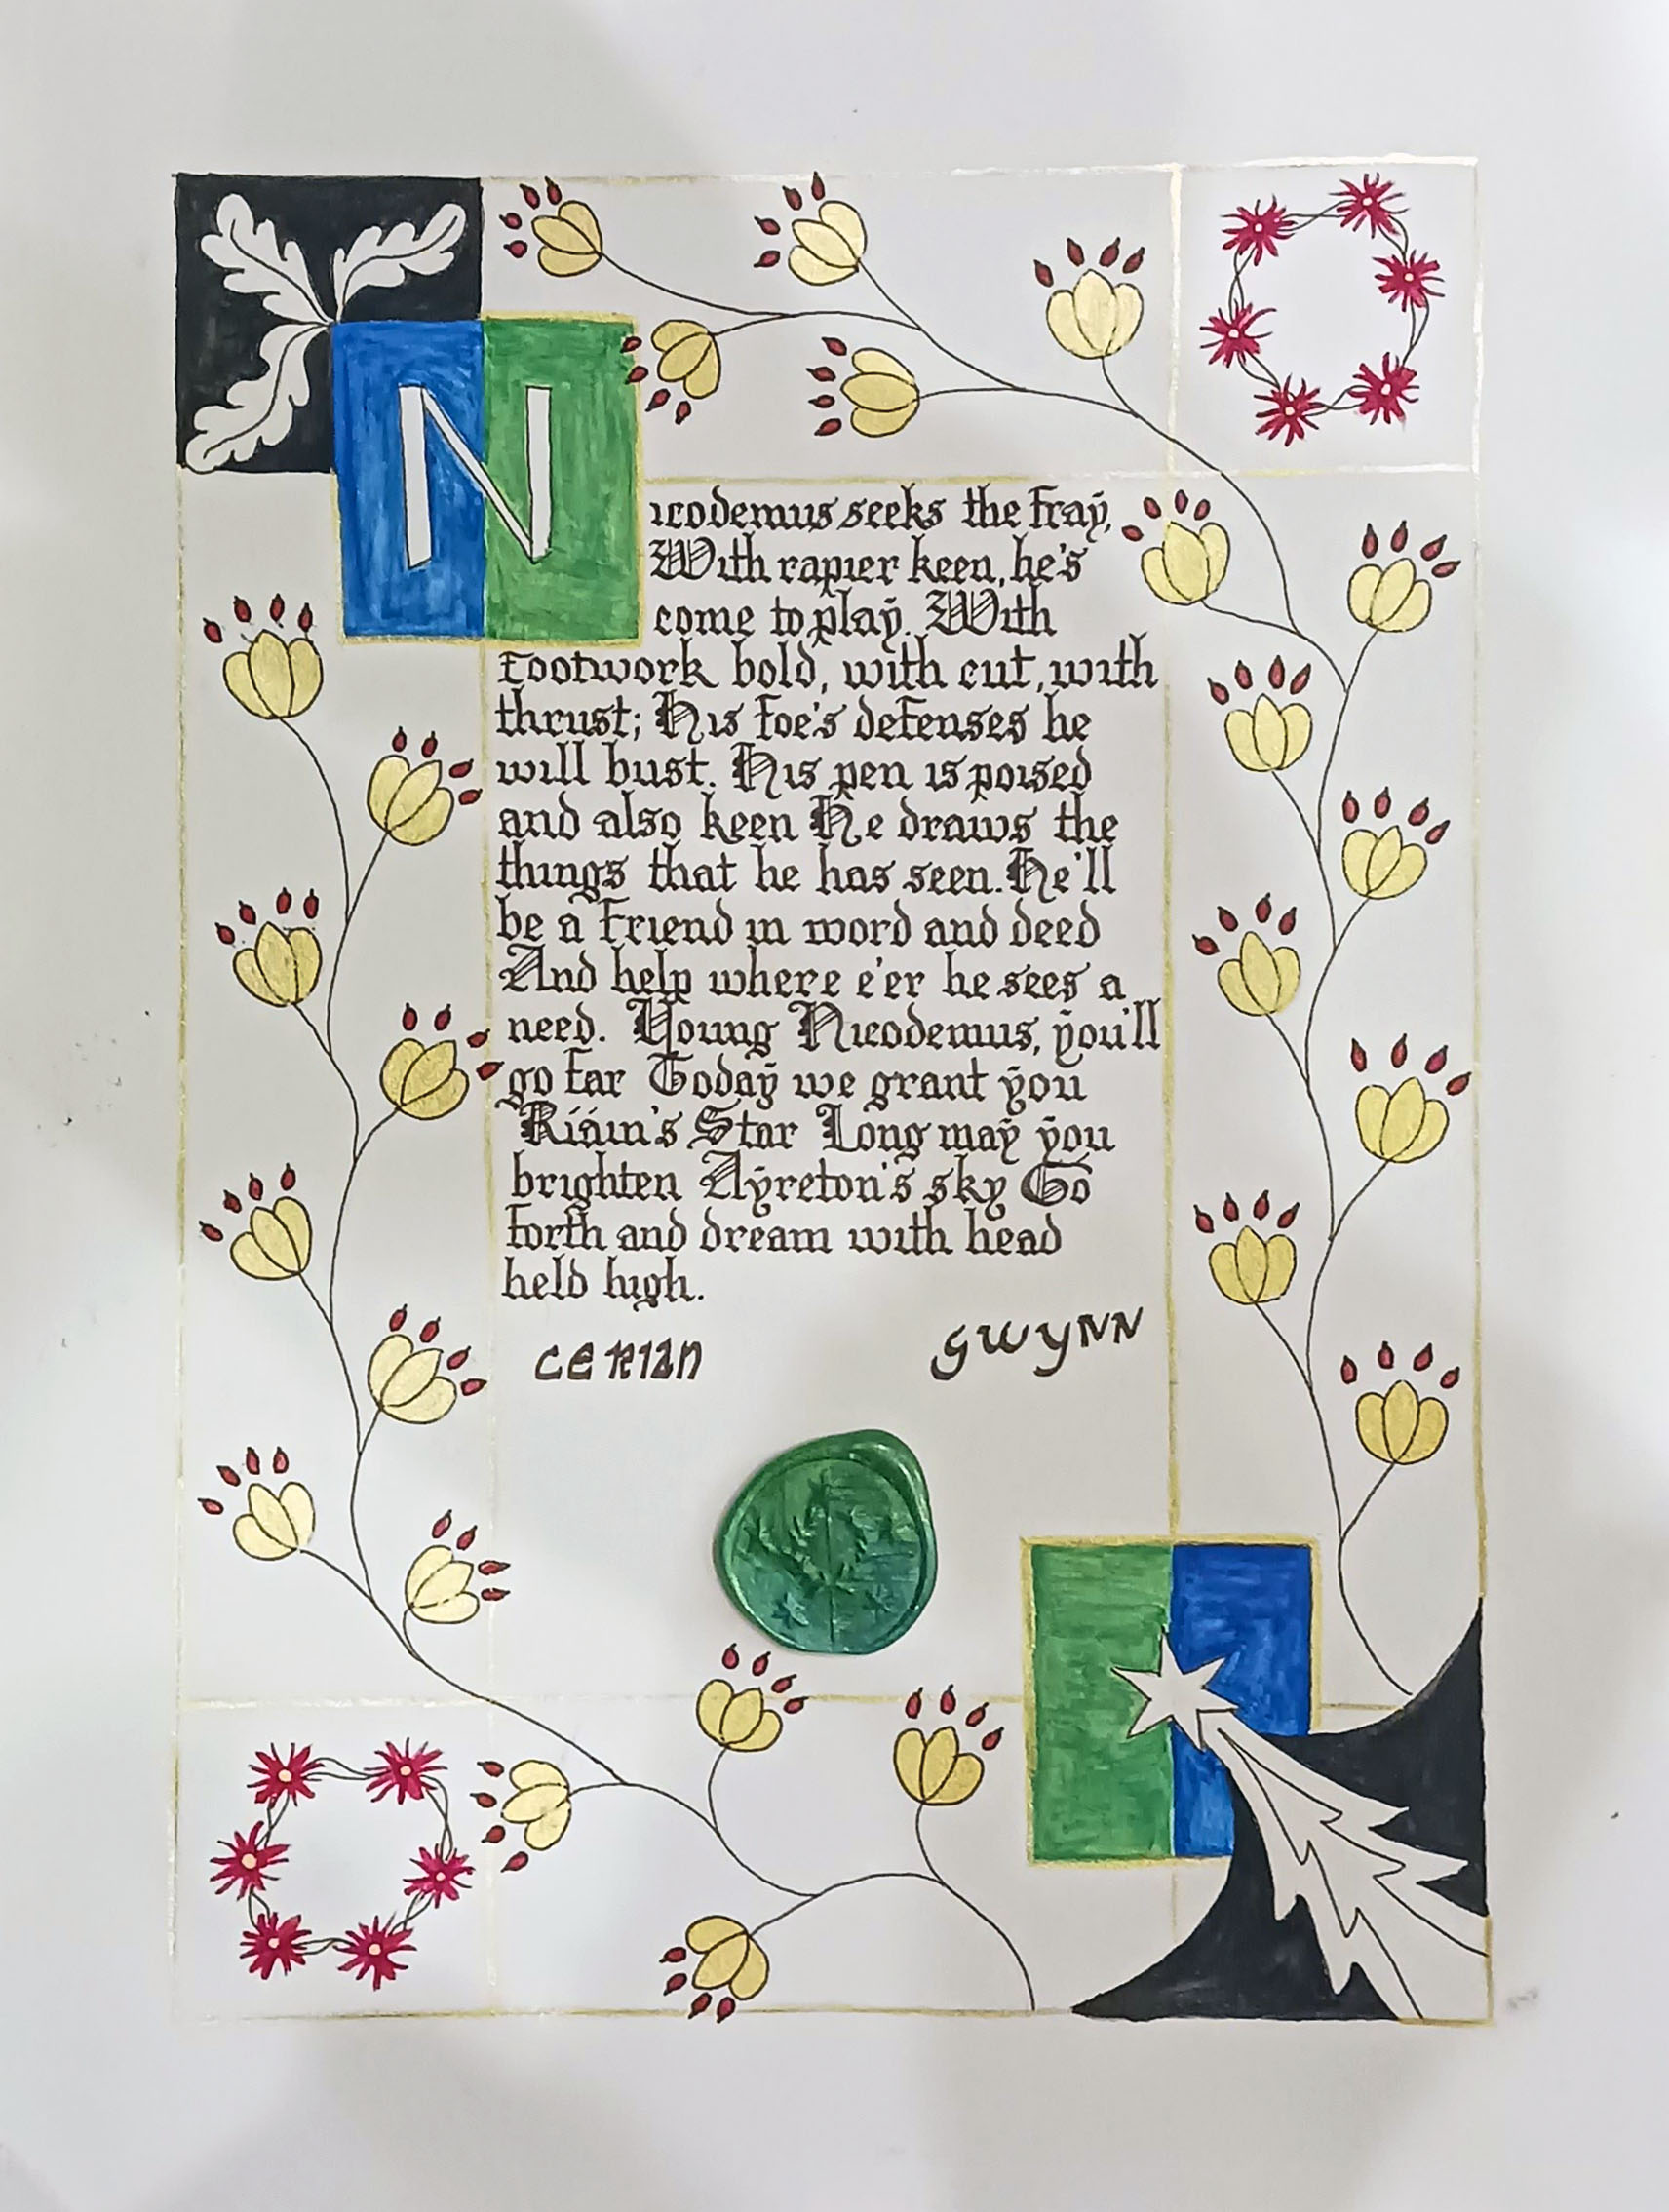 Nicodemus seeks the fray,
With rapier keen, he's
come to play. With
footwork bold, with cut, with
thrust; His foe's defenses he
will bust. His pen is poised
and also keen He draws the
things that he has seen. He'll
be a friend in word and deed
And help where e'er he sees a
need. Young Nicodemus, you'll
go far Today we grant you
Riáin's Star Long may you
brighten Ayreton's sky Go
forth and dream with head
held high.
CERIAN GWYNN